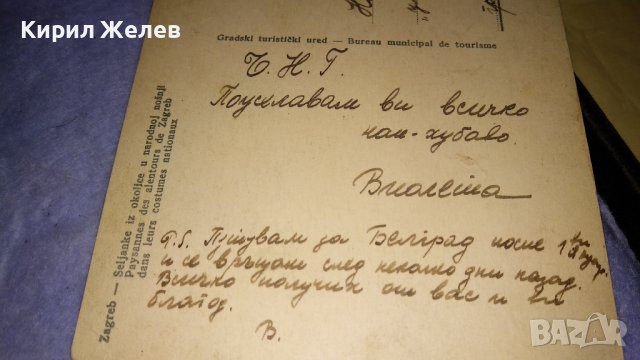 Кирил Желев
Gradski turistički ured — Bureau municipal de tourisme
Ч. Н. Г.
Пожелавам ви всичко
най-хубаво.
Виолета
P.S. Пътувам за Белград после
и се връщам след няколко дни назад.
Всичко получих от вас и ви
благод.
В.
Zagreb — Seljanke iz okolice u narodnoj nošnji
Paysannes des alentours de Zagreb
dans leurs costumes nationaux
BAZAR.bg